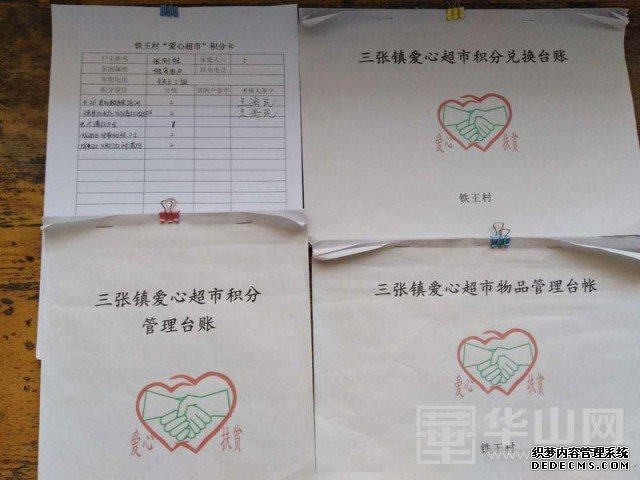 铁王村“爱心超市”积分卡
户主姓名 家庭人口 5
贫困属性 联系电话
家庭地址 铁王二组
积分项目 分值 贫困户签字 考核人签字
2
2
2
2
三张镇爱心超市积分兑换台账
爱心 扶贫
铁王村
三张镇爱心超市积分
管理台账
爱心 扶贫
三张镇爱心超市物品管理台帐
爱心 扶贫
铁王村
华山网
织梦内容管理系统
DEDECMS.COM